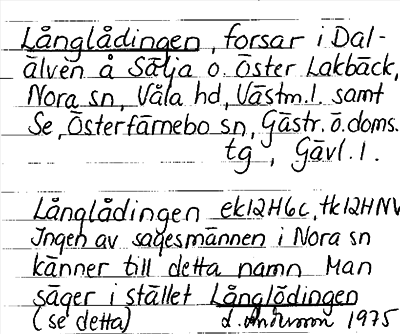 Långlådingen, forsar i Dal-
älven å Sälja o. Öster Lakbäck,
Nora sn, Våla hd, Västm.l. samt
Se, Österfärnebo sn, Gästr. ö. doms.
tg, Gävl. l.
Långlådingen ek12H6c, tk12HNV
Ingen av sagesmännen i Nora sn
känner till detta namn Man
säger i stället Långlödingen
(se detta) 1975